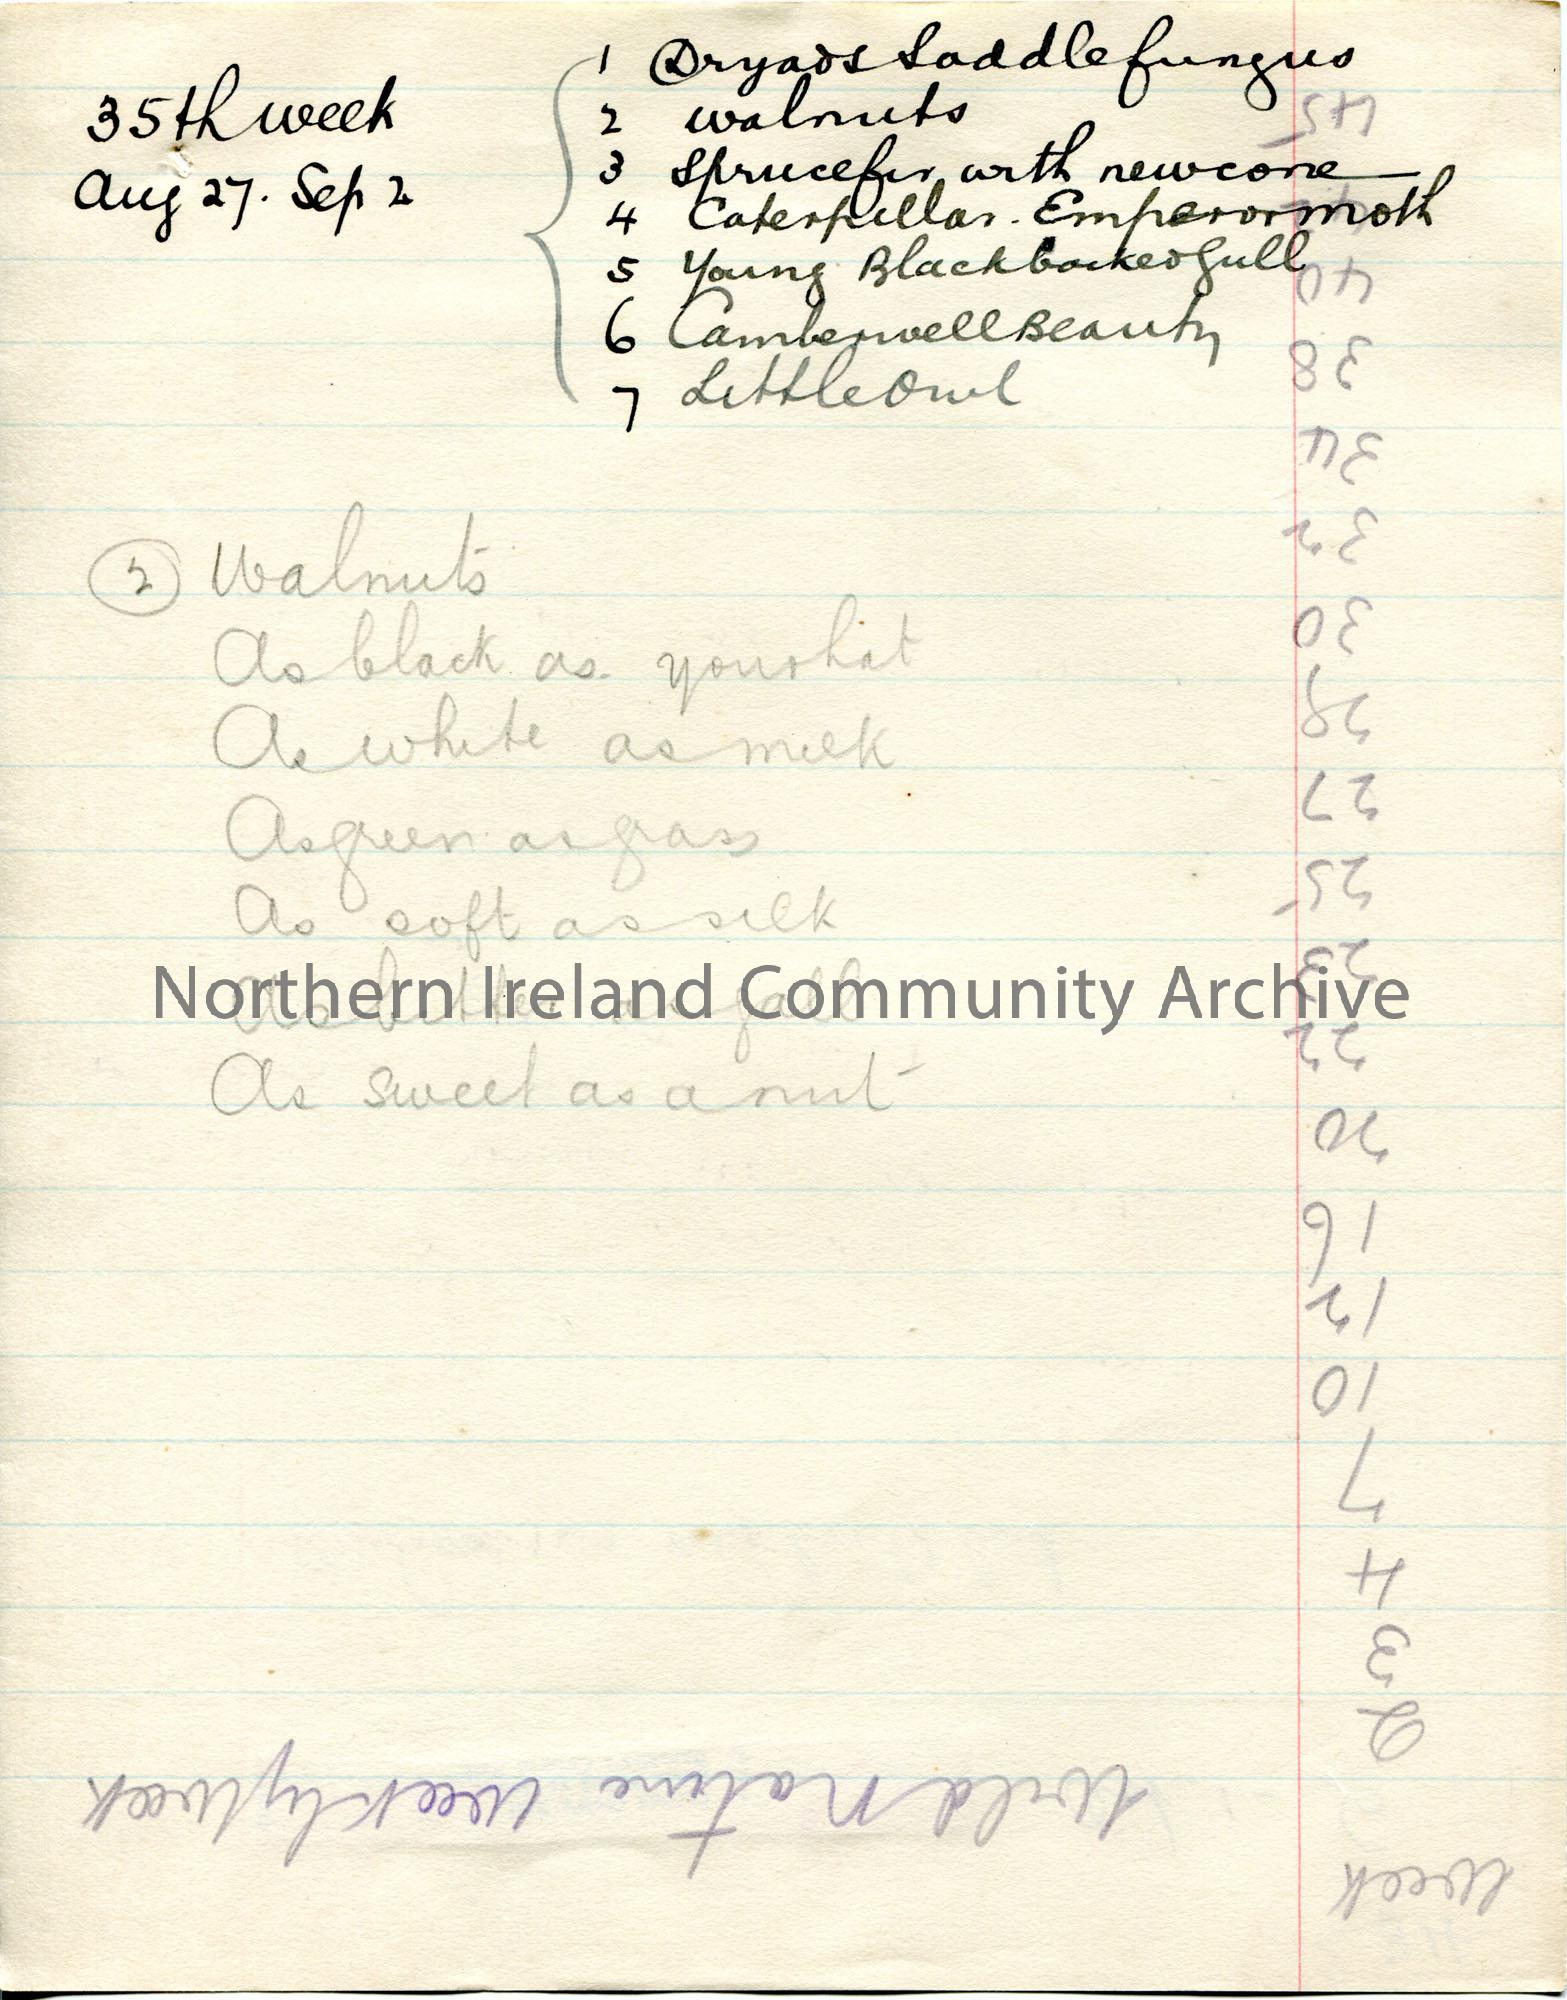 35th week
Aug 27. Sep 2
1 Dryads Saddle fungus
2 walnuts
3 Spruce fir with new cone
4 Caterpillar. Emperor moth
5 Young Blackbacked Gull
6 Camberwell Beauty
7 Little Owl
2 Walnuts
As black as your hat
As white as milk
As green as grass
As soft as silk
As bitter as gall
As sweet as a nut
Northern Ireland Community Archive
Wild Nature Week by Week
Week
2
3
4
7
10
12
16
20
22
23
25
27
28
30
32
34
38
40
45